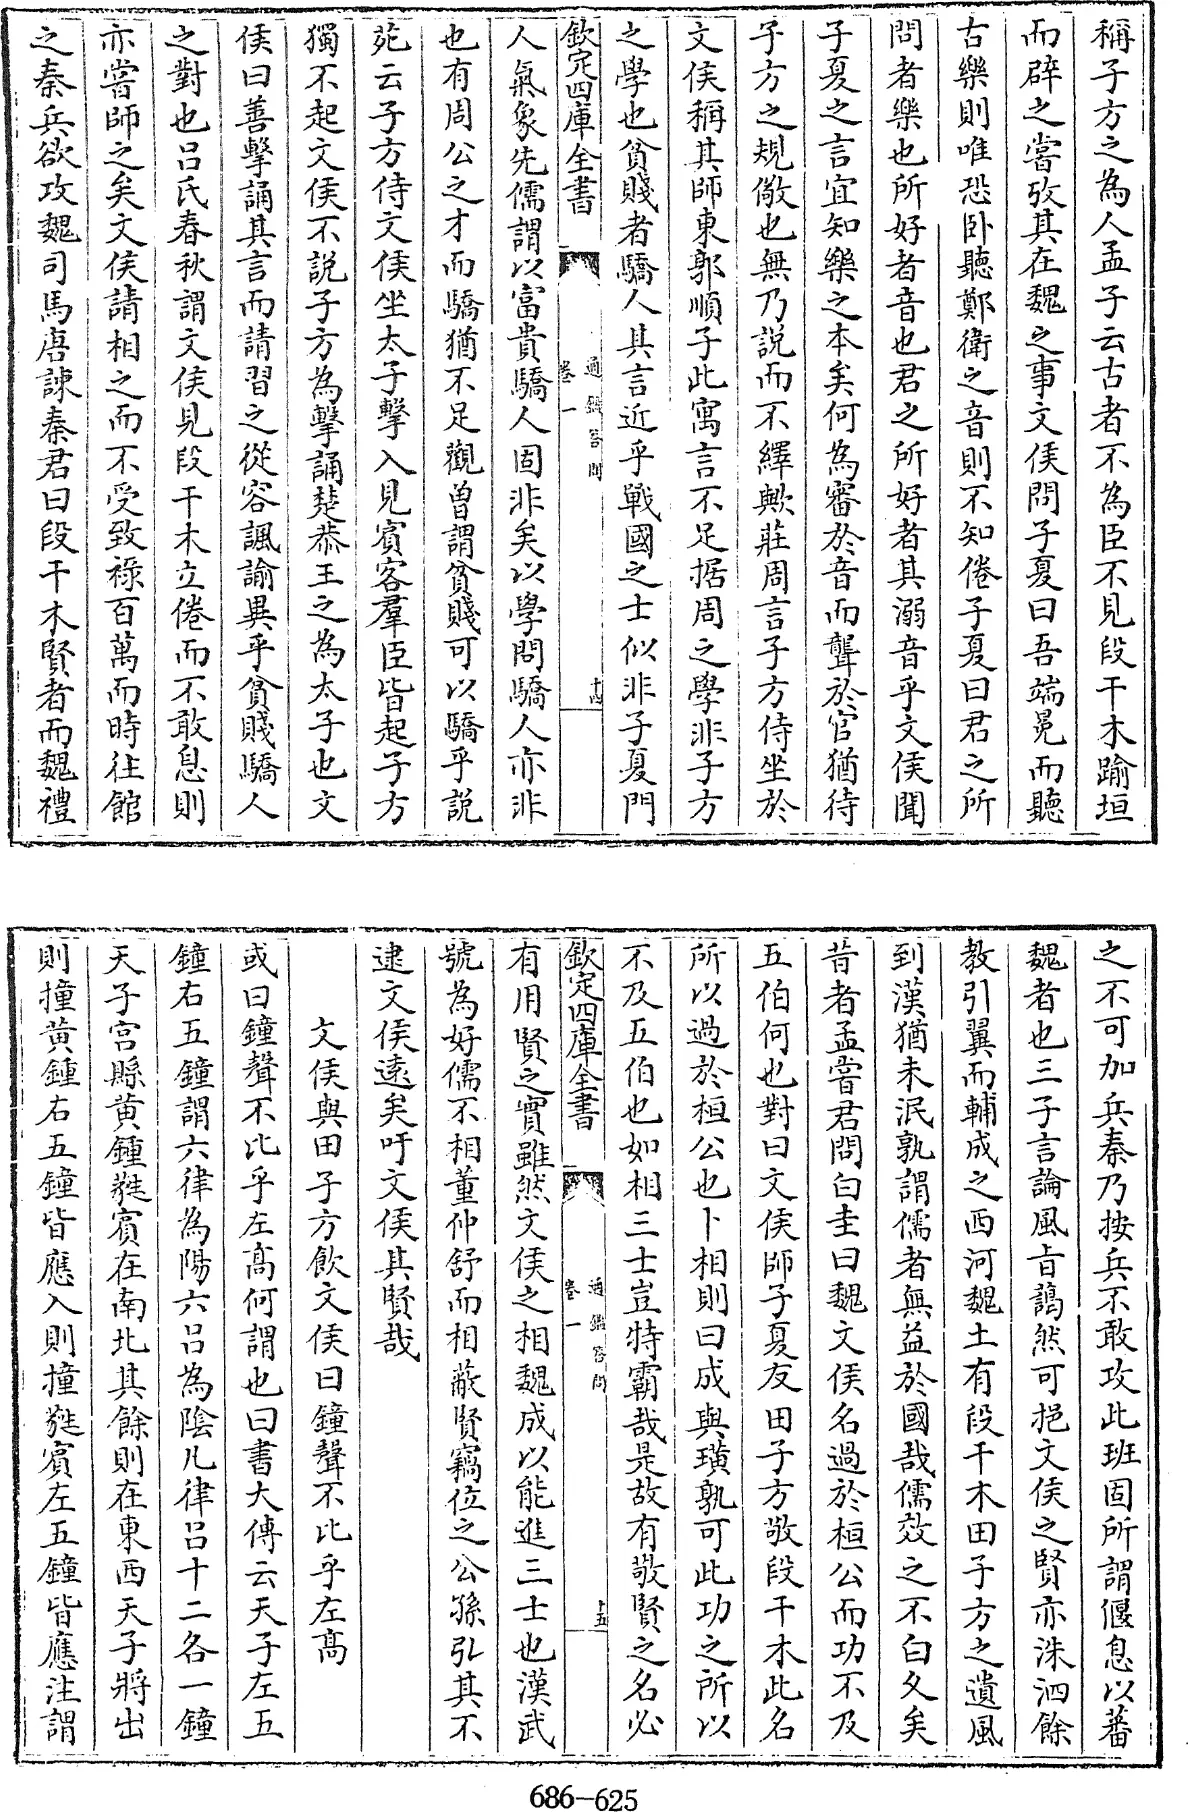 稱子方之為人孟子云古者不為臣不見段干木踰垣
而辟之嘗攷其在魏之事文侯問子夏曰吾端冕而聽
古樂則唯恐卧聽鄭衛之音則不知倦子夏曰君之所
問者樂也所好者音也君之所好者其溺音乎文侯聞
子夏之言宜知樂之本矣何為審於音而聾於官猶待
子方之規儆也無乃説而不繹歟莊周言子方侍坐於
文侯稱其師東郭順子此寓言不足据周之學非子方
之學也貧賤者驕人其言近乎戰國之士似非子夏門
欽定四庫全書
通鑑答問
卷一
十四
人氣象先儒謂以富貴驕人固非矣以學問驕人亦非
也有周公之才而驕猶不足觀曾謂貧賤可以驕乎説
苑云子方侍文侯坐太子擊入見賓客羣臣皆起子方
獨不起文侯不説子方為擊誦楚恭王之為太子也文
侯曰善擊誦其言而請習之從容諷諭異乎貧賤驕人
之對也吕氏春秋謂文侯見段干木立倦而不敢息則
亦嘗師之矣文侯請相之而不受致祿百萬而時往館
之秦兵欲攻魏司馬唐諫秦君曰段干木賢者而魏禮
之不可加兵秦乃按兵不敢攻此班固所謂偃息以蕃
魏者也三子言論風旨藹然可挹文侯之賢亦洙泗餘
教引翼而輔成之西河魏土有段干木田子方之遺風
到漢猶未泯孰謂儒者無益於國哉儒效之不白久矣
昔者孟嘗君問白圭曰魏文侯名過於桓公而功不及
五伯何也對曰文侯師子夏友田子方敬段干木此名
所以過於桓公也卜相則曰成與璜孰可此功之所以
不及五伯也如相三士豈特霸哉是故有敬賢之名必
欽定四庫全書
通鑑答問
卷一
十五
有用賢之實雖然文侯之相魏成以能進三士也漢武
號為好儒不相董仲舒而相蔽賢竊位之公孫弘其不
逮文侯遠矣吁文侯其賢哉
文侯與田子方飲文侯曰鐘聲不比乎左高
或曰鐘聲不比乎左高何謂也曰書大傳云天子左五
鐘右五鐘謂六律為陽六吕為陰凡律吕十二各一鐘
天子宮縣黄鍾蕤賓在南北其餘則在東西天子將出
則撞黄鍾右五鐘皆應入則撞蕤賓左五鐘皆應注謂
686-625